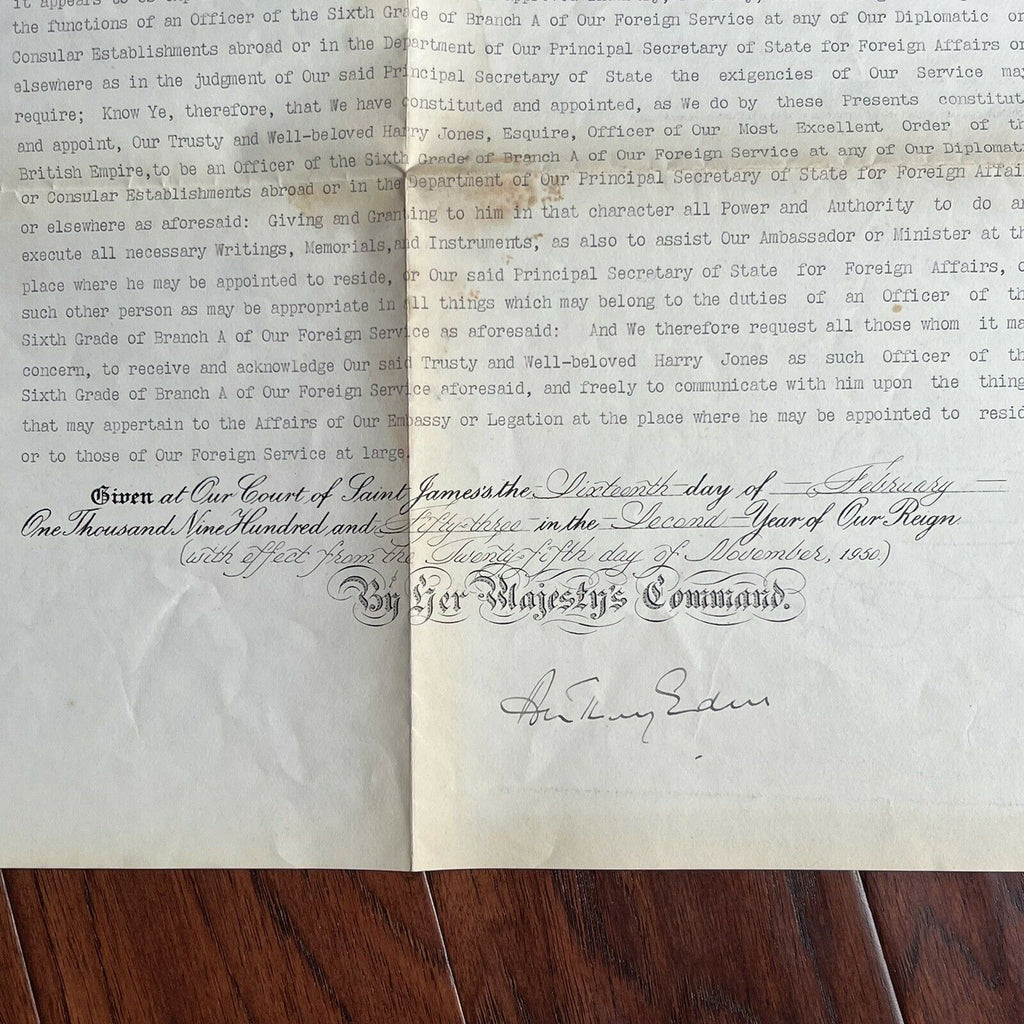 it appears to
the functions of an Officer of the Sixth Grade of Branch A of Our Foreign Service at any of Our Diplomatic or
Consular Establishments abroad or in the Department of Our Principal Secretary of State for Foreign Affairs or
elsewhere as in the judgment of Our said Principal Secretary of State the exigencies of Our Service may
require; Know Ye, therefore, that We have constituted and appointed, as We do by these Presents constitut
and appoint, Our Trusty and Well-beloved Harry Jones, Esquire, Officer of Our Most Excellent Order of th
British Empire,to be an Officer of the Sixth Grade of Branch A of Our Foreign Service at any of Our Diplomati
or Consular Establishments abroad or in the Department of Our Principal Secretary of State for Foreign Affai
or elsewhere as aforesaid: Giving and Granting to him in that character all Power and Authority to do an
execute all necessary Writings, Memorials,and Instruments, as also to assist Our Ambassador or Minister at th
place where he may be appointed to reside, or Our said Principal Secretary of State for Foreign Affairs, o
such other person as may be appropriate in all things which may belong to the duties of an Officer of th
Sixth Grade of Branch A of Our Foreign Service as aforesaid: And We therefore request all those whom it ma
concern, to receive and acknowledge Our said Trusty and Well-beloved Harry Jones as such Officer of th
Sixth Grade of Branch A of Our Foreign Service aforesaid, and freely to communicate with him upon the thing
that may appertain to the Affairs of Our Embassy or Legation at the place where he may be appointed to resid
or to those of Our Foreign Service at large.
Given at Our Court of Saint James's the Sixteenth day of February
One Thousand Nine Hundred and Fifty-three in the Second Year of Our Reign
(with effect from the Twenty-fifth day of November, 1950.)
By Her Majesty's Command.
Anthony Eden